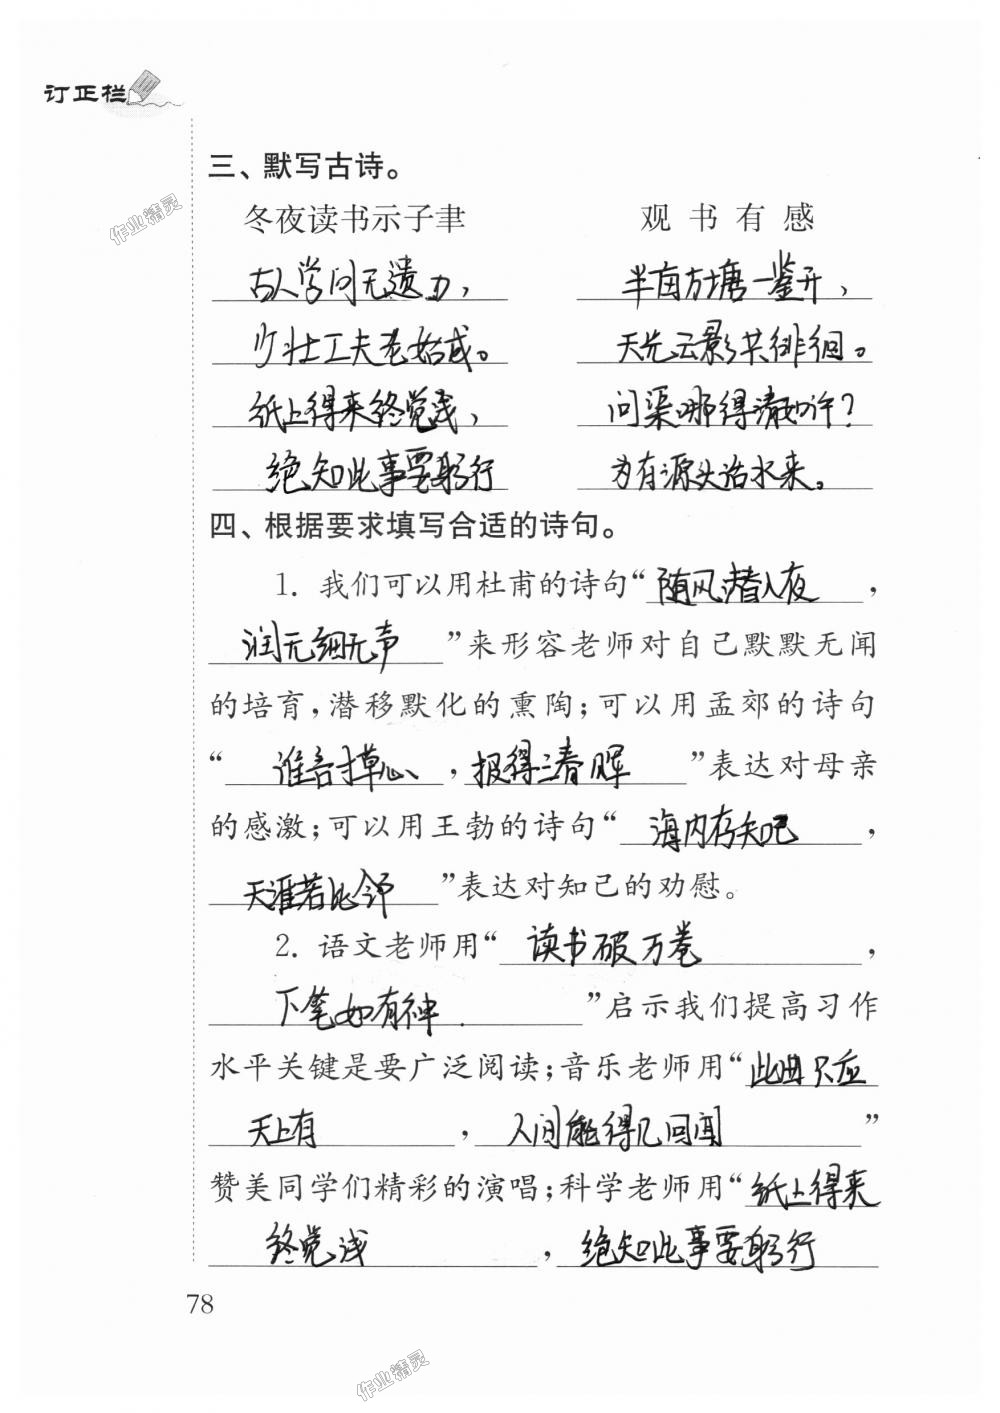 订正栏
三、默写古诗。
冬夜读书示子聿 观书有感
古人学问无遗力， 半亩方塘一鉴开，
少壮工夫老始成。 天光云影共徘徊。
纸上得来终觉浅， 问渠哪得清如许？
绝知此事要躬行 为有源头活水来。
四、根据要求填写合适的诗句。
1. 我们可以用杜甫的诗句“随风潜入夜，
润无细无声”来形容老师对自己默默无闻
的培育，潜移默化的熏陶；可以用孟郊的诗句
“谁言寸草心，报得三春晖”表达对母亲
的感激；可以用王勃的诗句“海内存知己，
天涯若比邻”表达对知己的劝慰。
2. 语文老师用“读书破万卷，
下笔如有神.”启示我们提高习作
水平关键是要广泛阅读；音乐老师用“此曲只应
天上有，人间能得几回闻”
赞美同学们精彩的演唱；科学老师用“纸上得来
终觉浅，绝知此事要躬行
78
作业精灵
作业精灵